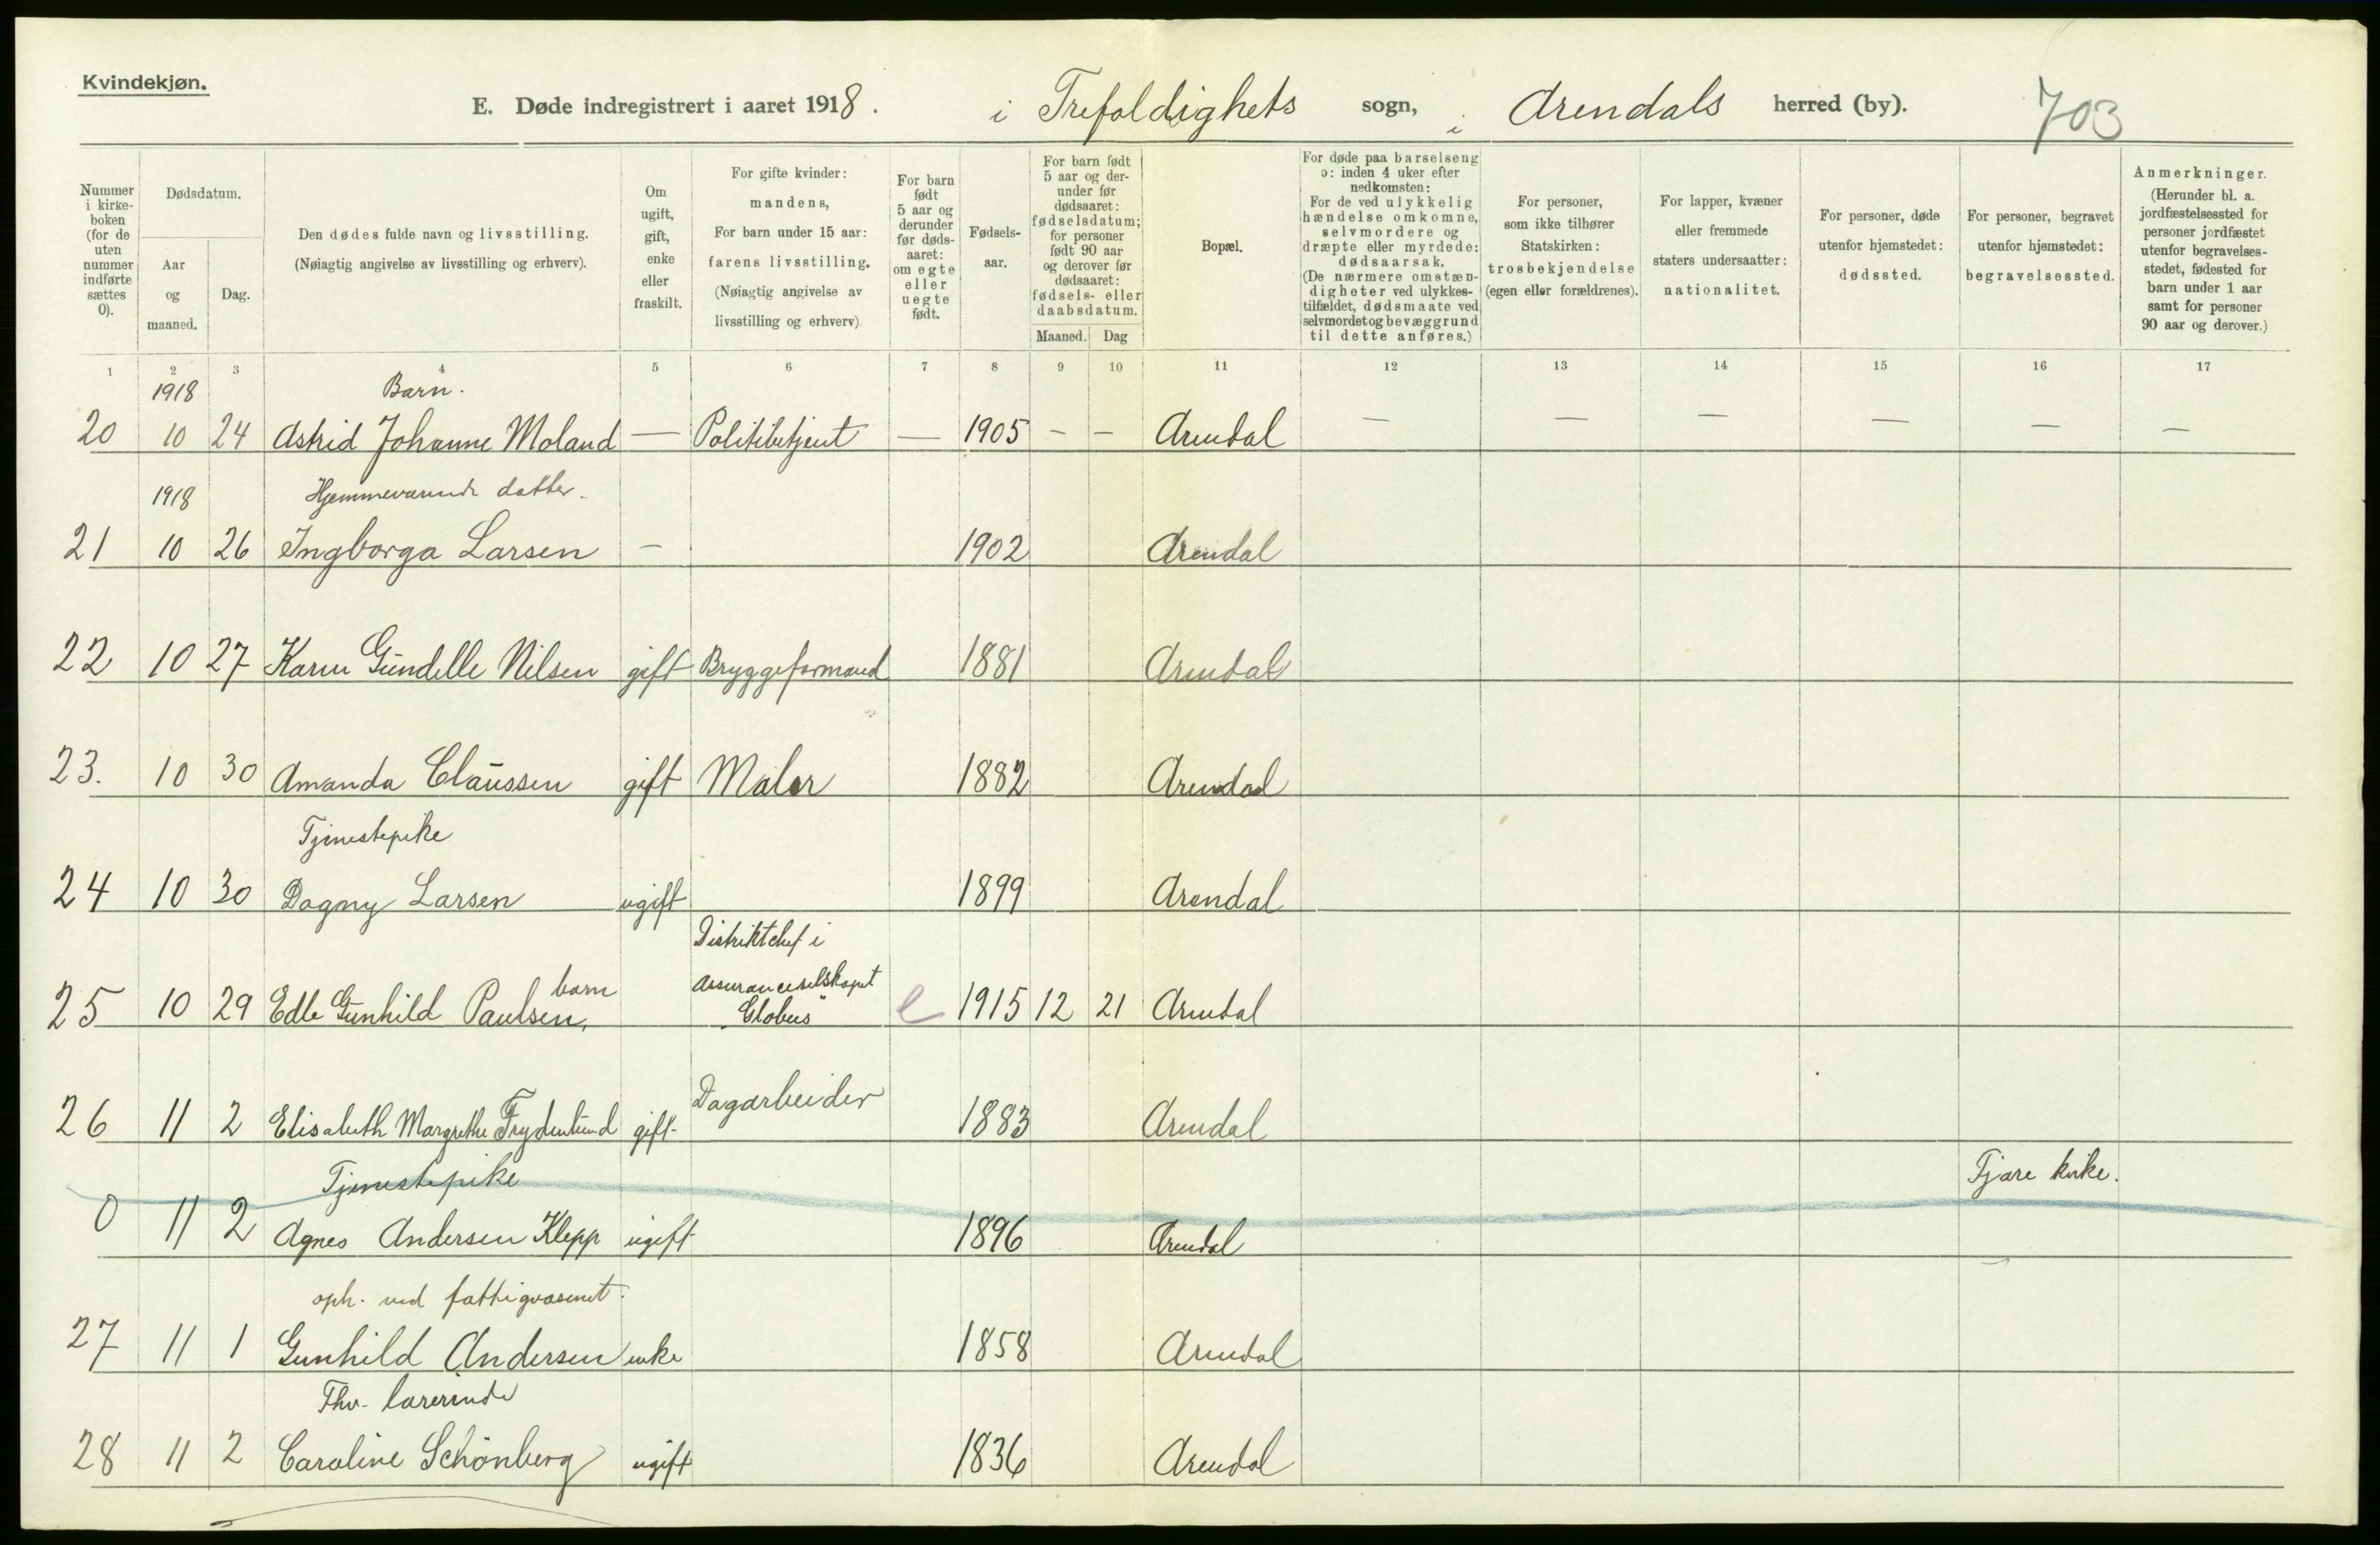 Kvindekjøn.
E. Døde indregistrert i aaret 1918. i Trefoldighets sogn, i Arendals herred (by). 703
Nummer i kirkeboken (for de uten nummer indførte sættes 0).
Dødsdatum.
Aar og maaned.
Dag.
Den dødes fulde navn og livsstilling.
(Nøiagtig angivelse av livsstilling og erhverv).
Om ugift, gift, enke eller fraskilt.
For gifte kvinder: mandens,
For barn under 15 aar: farens livsstilling.
(Nøiagtig angivelse av livsstilling og erhverv).
For barn født 5 aar og derunder før dødsaaret: om egte eller uegte født.
Fødselsaar.
For barn født 5 aar og derunder før dødsaaret: fødselsdatum; for personer født 90 aar og derover før dødsaaret: fødsels- eller daabsdatum.
Maaned. Dag
Bopæl.
For døde paa barselseng ɔ: inden 4 uker efter nedkomsten:
For de ved ulykkelig hændelse omkomne, selvmordere og dræpte eller myrdede: dødsaarsak.
(De nærmere omstændigheter ved ulykkestilfældet, dødsmaate ved selvmordet og bevæggrund til dette anføres.)
For personer, som ikke tilhører Statskirken: trosbekjendelse (egen eller forældrenes).
For lapper, kvæner eller fremmede staters undersaatter: nationalitet.
For personer, døde utenfor hjemstedet: dødssted.
For personer, begravet utenfor hjemstedet: begravelsessted.
Anmerkninger.
(Herunder bl. a. jordfæstelsessted for personer jordfæstet utenfor begravelsesstedet, fødested for barn under 1 aar samt for personer 90 aar og derover.)
1 2 3 4 5 6 7 8 9 10 11 12 13 14 15 16 17
1918 Barn.
20 10 24 Astrid Johanne Moland — Politibetjent — 1905 — — Arendal — — — — — —
1918 Hjemmeværende datter.
21 10 26 Ingborga Larsen — 1902 Arendal
22 10 27 Karen Gundelle Nilsen gift Bryggeformand 1881 Arendal
23. 10 30 Amanda Claussen gift Maler 1882 Arendal
Tjenestepike
24 10 30 Dagny Larsen ugift 1899 Arendal
Distriktchef i
barn Assuranceselskapet
25 10 29 Edle Gunhild Paulsen, "Globus" e 1915 12 21 Arendal
26 11 2 Elisabeth Margrethe Frydenlund gift Dagarbeider 1883 Arendal
Tjenestepike Fjære kirke.
0 11 2 Agnes Andersen Klepp ugift 1896 Arendal
oph. ved fattigvæsenet.
27 11 1 Gunhild Andersen enke 1858 Arendal
Fhv. lærerinde
28 11 2 Caroline Schönberg ugift 1836 Arendal